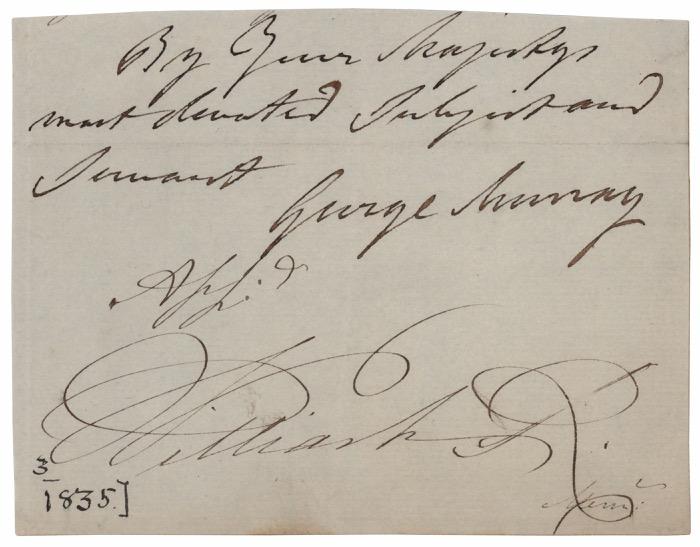 By Your Majestys
most devoted Subject and
Servant
George Murray
App:d
William R.
3
1835.]